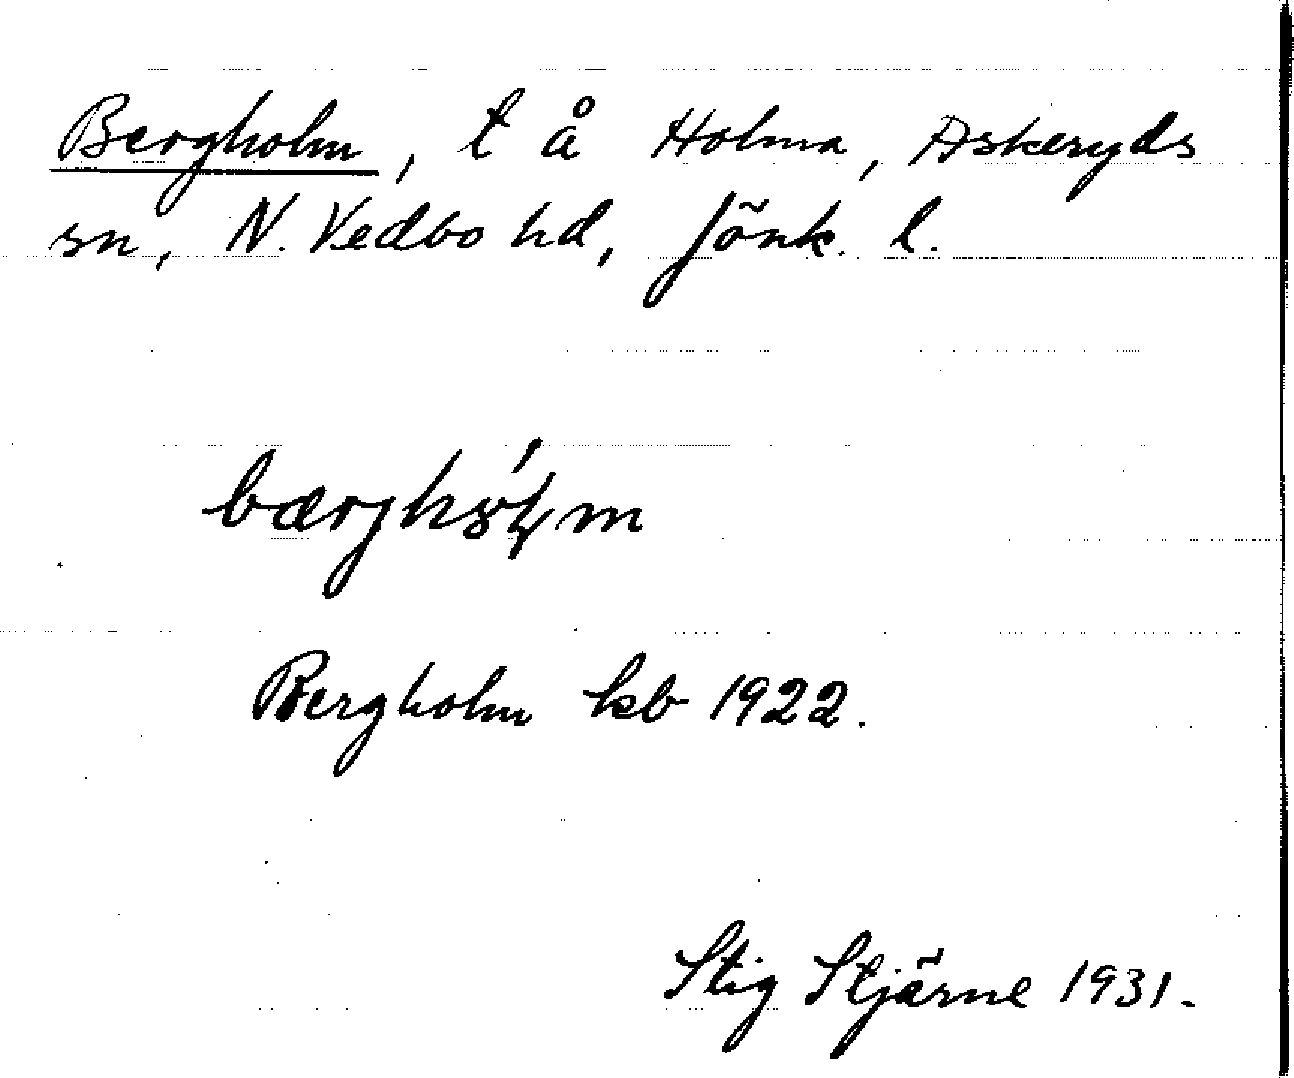 Bergholm, t å Holma, Askeryds
sn, N. Vedbo hd, Jönk. l.
Bergholm kb 1922.
Stig Stjärne 1931.